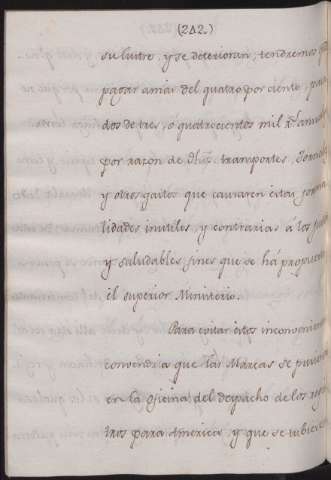 (242.)
su lustre, y se deterioran, tendremos
pagar amas del quatro por ciento,
dos de tres, ó quatrocientos mil Rs. anual
por razon de dhos. transportes, Jornal
y otros gastos que causaren estas forma
lidades inutiles, y contrarias á los
y saludables fines que se ha propuesto
el superior Ministerio.
Para evitar estos inconvenient
convendria que las Marcas se pusiesen
en la oficina del despacho de los regis
tros para America, y que se subiese